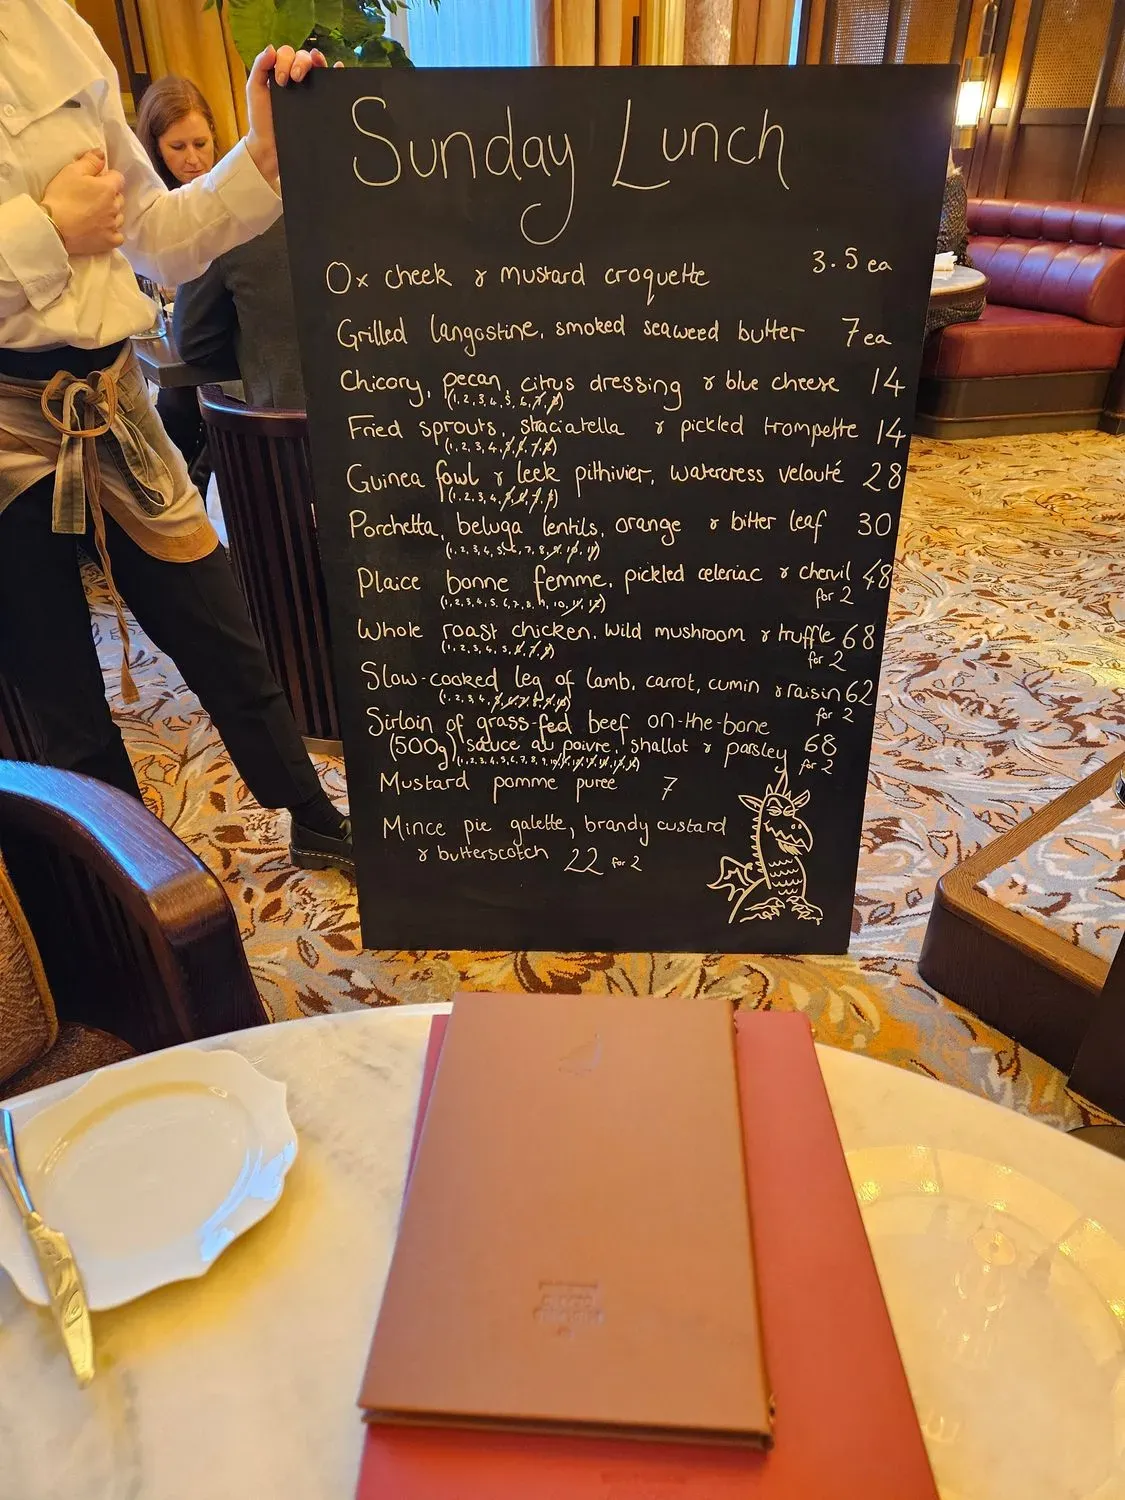 Sunday Lunch
Ox cheek & mustard croquette 3.5 ea
Grilled langostine, smoked seaweed butter 7 ea
Chicory, pecan, citrus dressing & blue cheese 14
(1, 2, 3, 4, 5, 6, 7, 8)
Fried sprouts, straciatella & pickled trompette 14
(1, 2, 3, 4, 5, 6, 7, 8)
Guinea fowl & leek pithivier, watercress velouté 28
(1, 2, 3, 4, 5, 6, 7, 8)
Porchetta, beluga lentils, orange & bitter leaf 30
(1, 2, 3, 4, 5, 6, 7, 8, 9, 10, 11)
Plaice bonne femme, pickled celeriac & chervil 48
for 2
(1, 2, 3, 4, 5, 6, 7, 8, 9, 10, 11, 12)
Whole roast chicken, wild mushroom & truffle 68
for 2
(1, 2, 3, 4, 5, 6, 7, 8)
Slow-cooked leg of lamb, carrot, cumin & raisin 62
for 2
(1, 2, 3, 4, 5, 6, 7, 8, 9, 10)
Sirloin of grass-fed beef on-the-bone
(500g) sauce au poivre, shallot & parsley 68
for 2
Mustard pomme puree 7
Mince pie galette, brandy custard
& butterscotch 22 for 2